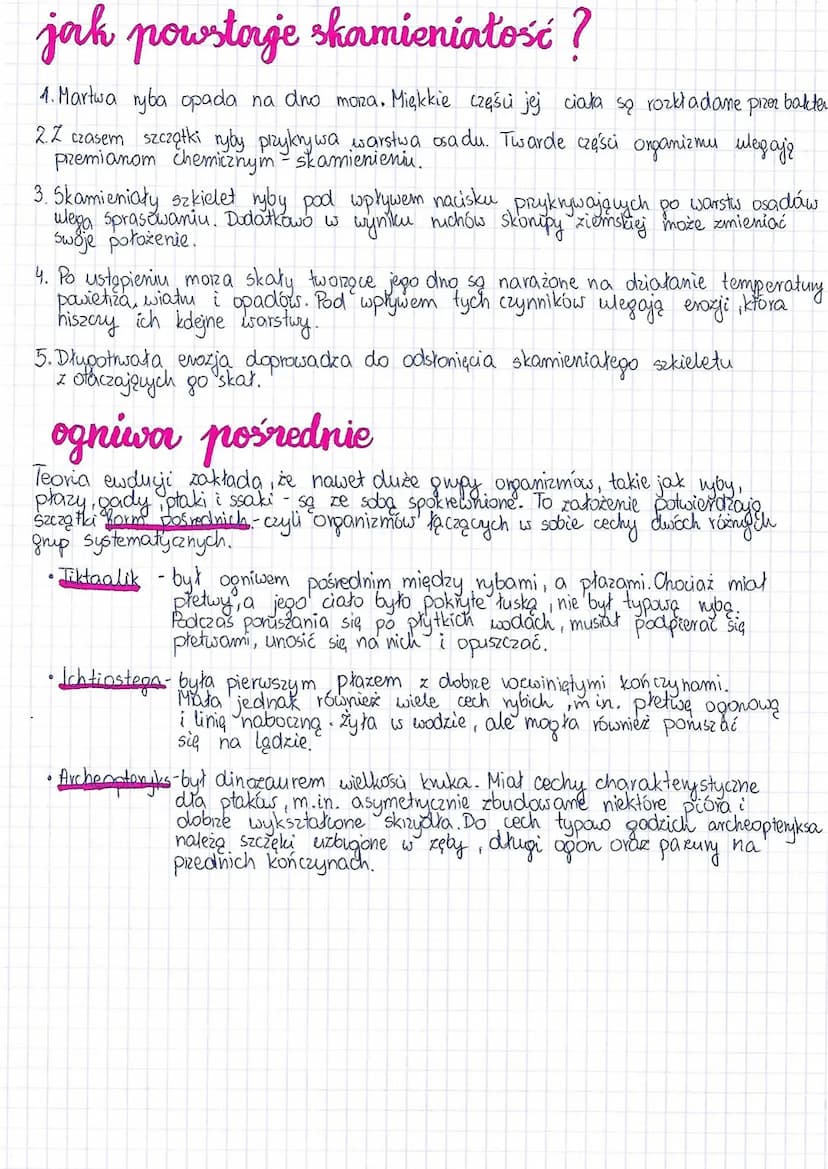 jak powstaje skamieniałość?
1. Martwa ryba opada na dno morza. Miękkie części jej ciała są rozkładane przez bakter
2. Z czasem szczątki ryby przykrywa warstwa osadu. Twarde części organizmu ulegają
przemianom chemicznym - skamienieniu.
3. Skamieniały szkielet ryby pod wpływem nacisku przykrywających go warstw osadów
ulega sprasowaniu. Dodatkowo w wyniku ruchów skorupy ziemskiej może zmieniać
swoje położenie.
4. Po ustąpieniu morza skały tworzące jego dno są narażone na działanie temperatury
powietrza, wiatru i opadów. Pod wpływem tych czynników ulegają erozji, która
niszczy ich kolejne warstwy.
5. Długotrwała erozja doprowadza do odsłonięcia skamieniałego szkieletu
z otaczających go skał.
ogniwa pośrednie
Teoria ewolucji zakłada, że nawet duże grupy organizmów, takie jak ryby,
płazy, gady, ptaki i ssaki - są ze sobą spokrewnione. To założenie potwierdzają
szczątki form pośrednich - czyli organizmów łączących w sobie cechy dwóch różnych
grup systematycznych.
• Tiktaalik - był ogniwem pośrednim między rybami, a płazami. Chociaż miał
płetwy, a jego ciało było pokryte łuską, nie był typową rybą.
Podczas poruszania się po płytkich wodach, musiał podpierać się
płetwami, unosić się na nich i opuszczać.
• Ichtiostega - była pierwszym płazem z dobrze rozwiniętymi kończynami.
Miała jednak również wiele cech rybich, m.in. płetwę ogonową
i linię naboczną. Żyła w wodzie, ale mogła również poruszać
się na lądzie.
• Archeopteryks - był dinozaurem wielkości kruka. Miał cechy charakterystyczne
dla ptaków, m.in. asymetrycznie zbudowane niektóre pióra i
dobrze wykształcone skrzydła. Do cech typowo gadzich archeopteryksa
należą szczęki uzbrojone w zęby, długi ogon oraz pazury na
przednich kończynach.